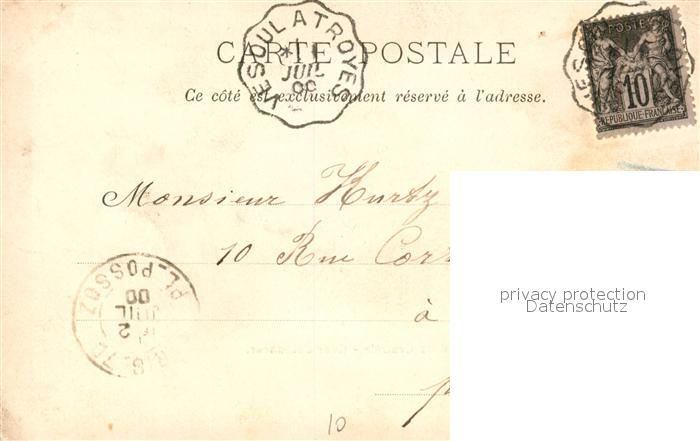 CARTE POSTALE
Ce côté est exclusivement réservé à l'adresse.
VESOUL A TROYES
1
JUIL
00
POSTE
10
REPUBLIQUE FRANÇAISE
Monsieur Kurtz
10 Rue
à
PL. POSSOZ
2
JUIL
00
privacy protection
Datenschutz
10